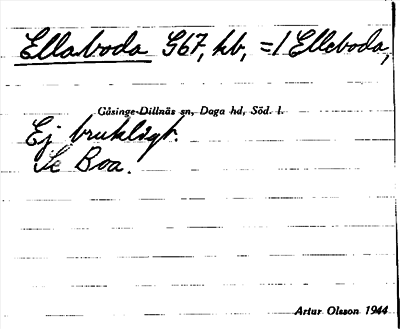 Ellaboda G67, hb, =1 Elleboda,
Gåsinge-Dillnäs sn, Daga hd, Söd. l.
Ej brukligt.
Se Boa.
Artur Olsson 1944